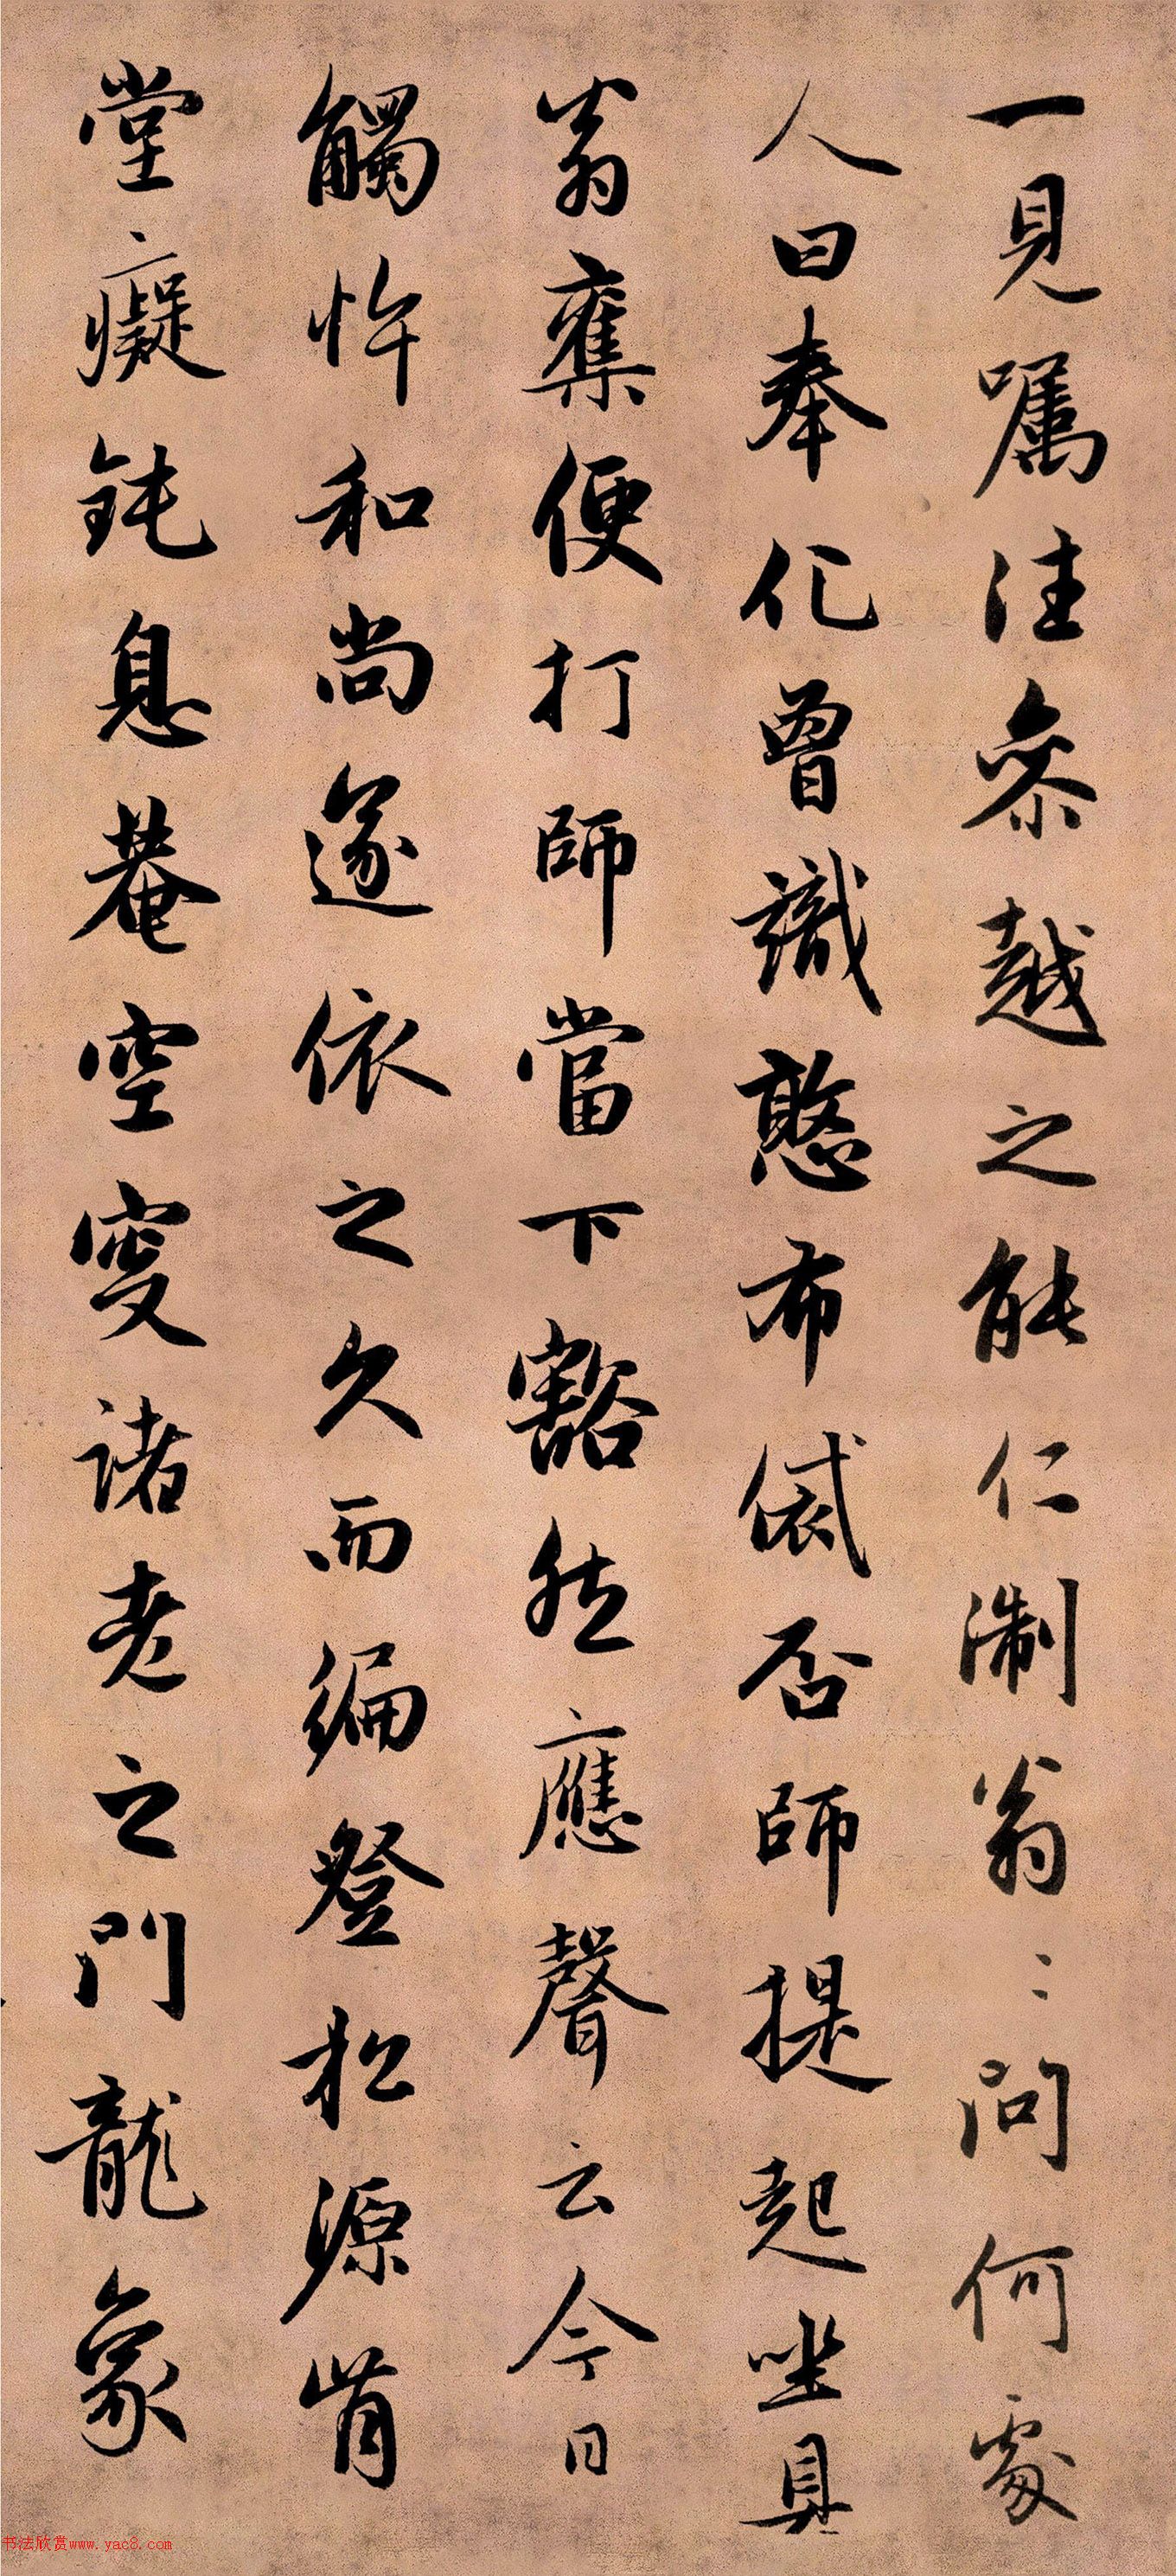 一見囑注參越之能仁淛翁〻問何處
人曰奉化曾識憨布袋否師提起坐具
翁奪便打師當下豁然應聲云今日
觸忤和尚遂依之久而徧登松源肯
堂癡鈍息菴空叟諸老之門龍象
书法欣赏www.yac8.com